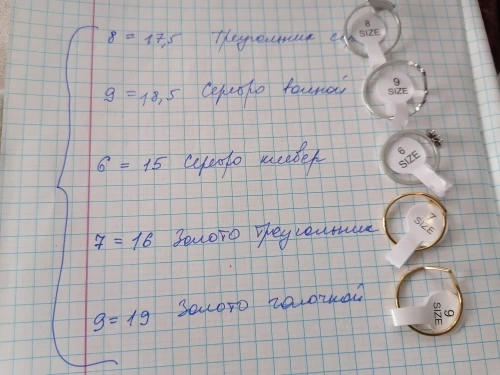 8 = 17,5 Треугольник
8 SIZE
9 = 18,5 Серебро волной
9 SIZE
6 = 15 Серебро клевер
6 SIZE
7 = 16 Золото треугольник
7 SIZE
9 = 19 Золото галочкой
9 SIZE